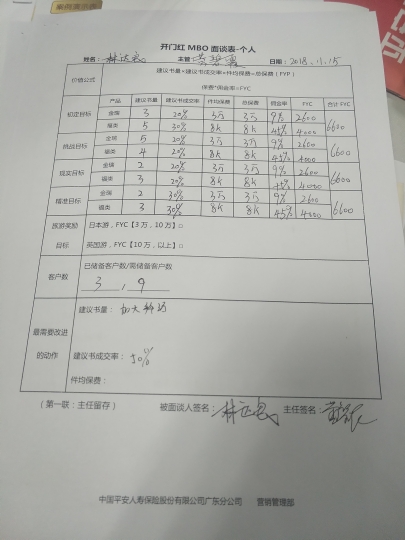 开门红 MBO 面谈表-个人
姓名: 主管 日期: 2018.11.15
价值公式 建议书量×建议书成交率×件均保费=总保费（FYP）
保费*佣金率=FYC
产品 建议书量 建议书成交率 件均保费 总保费 佣金率 FYC 合计 FYC
初定目标 金瑞 3 20% 3万 3万 9% 2600 6600
福类 5 30% 8k 8k 45% 4000
挑战目标 金瑞 5 20% 3万 3万 9% 2600 6600
福类 4 20% 8k 8k 45% 4000
现实目标 金瑞 2 20% 3万 3万 9% 2600 6600
福类 3 20% 8k 8k 45% 4000
精准目标 金瑞 2 30% 3万 3万 9% 2600 6600
福类 3 30% 8k 8k 45% 4000
旅游奖励 日本游，FYC【3万，10万】□
目标 英国游，FYC【10万，以上】□
客户数 已储备客户数/需储备客户数
3 , 9
最需要改进的动作 建议书量： 加大
建议书成交率： 50%
件均保费：
（第一联：主任留存） 被面谈人签名： 主任签名：
中国平安人寿保险股份有限公司广东分公司 营销管理部